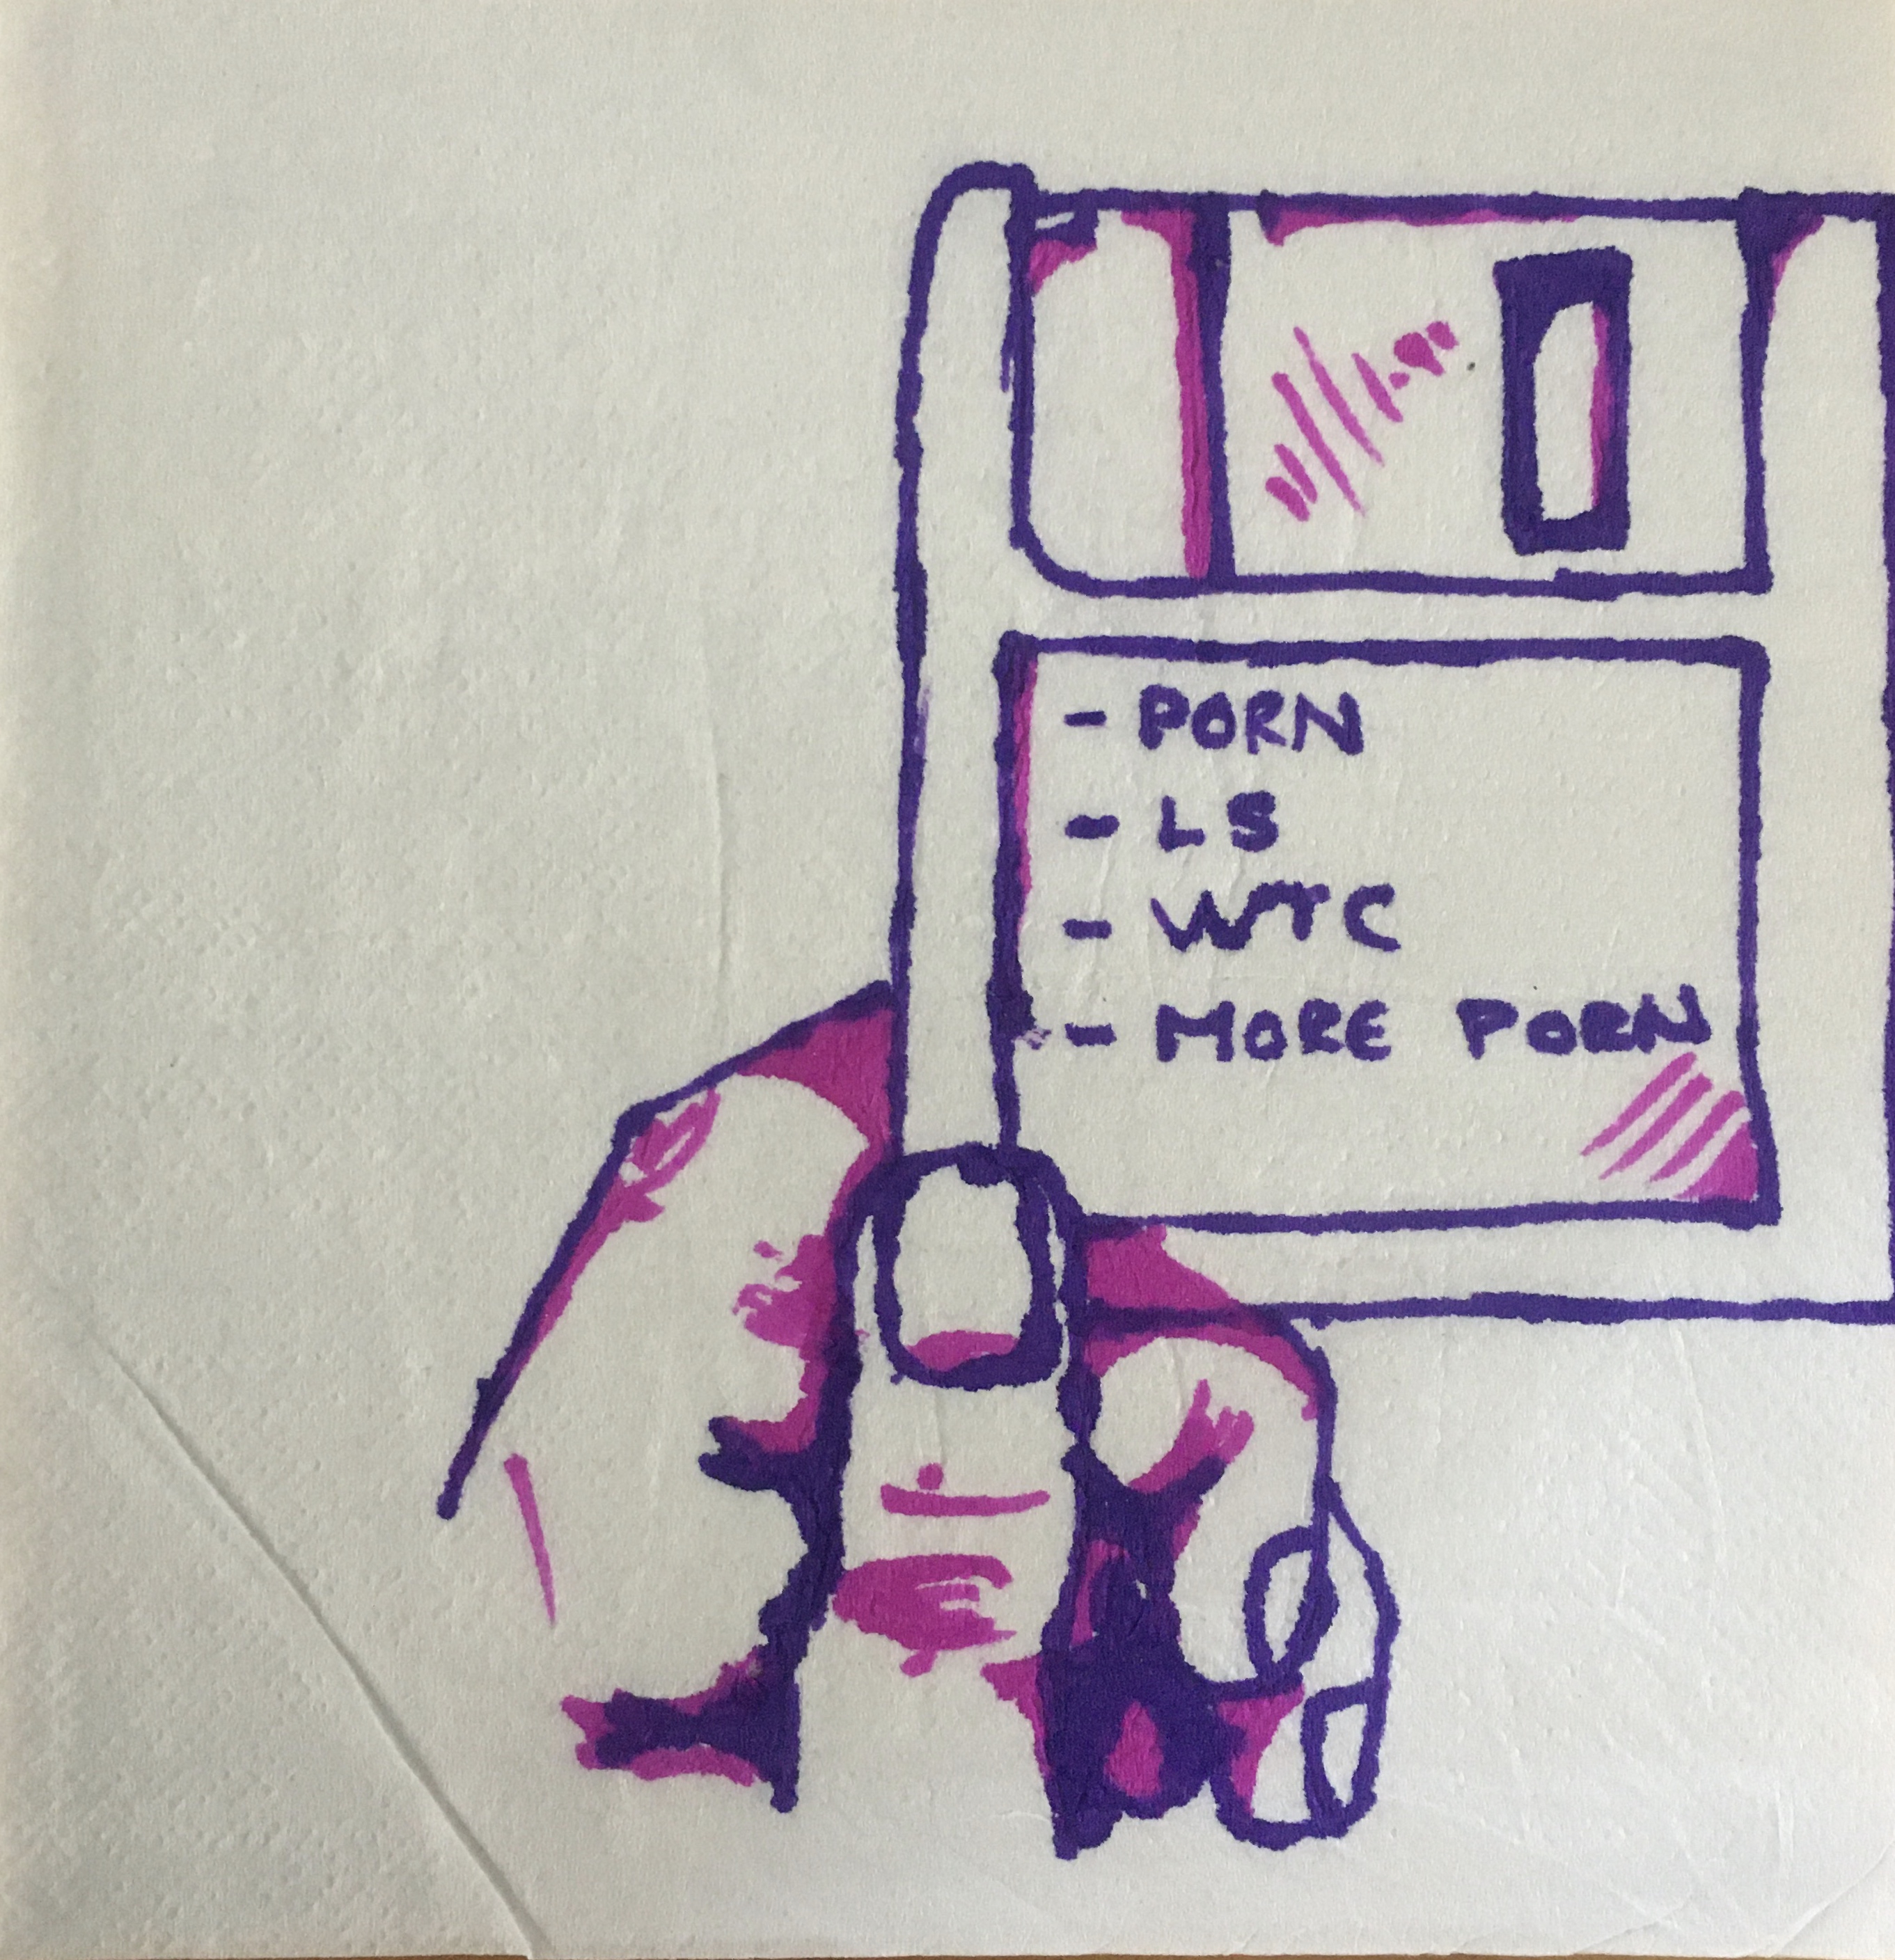 - PORN
- LS
- WTC
- MORE PORN